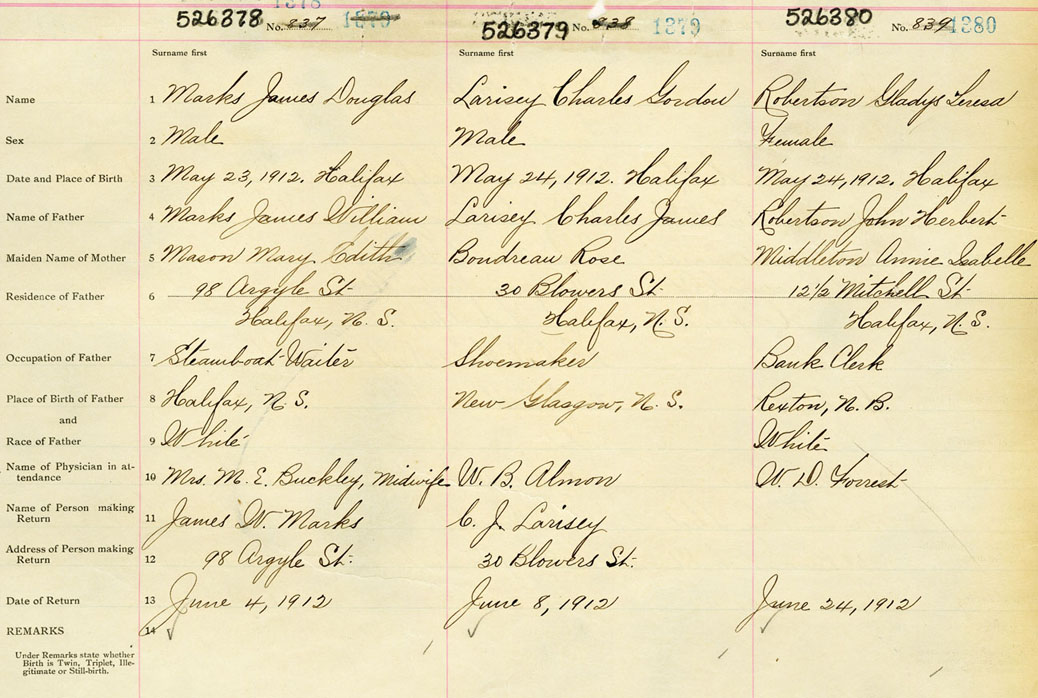 1378
526378 No. 837 1379
526379 No. 838 1379
526380 No. 839 1380
Surname first Surname first Surname first
Name 1 Marks James Douglas Larisey Charles Gordon Robertson Gladys Teresa
Sex 2 Male Male Female
Date and Place of Birth 3 May 23, 1912. Halifax May 24, 1912. Halifax May 24, 1912. Halifax
Name of Father 4 Marks James William Larisey Charles James Robertson John Herbert
Maiden Name of Mother 5 Mason Mary Edith Boudreau Rose Middleton Annie Isabelle
Residence of Father 6 98 Argyle St. 30 Blowers St. 12½ Mitchell St.
Halifax, N. S. Halifax, N. S. Halifax, N. S.
Occupation of Father 7 Steamboat Waiter Shoemaker Bank Clerk
Place of Birth of Father 8 Halifax, N. S. New Glasgow, N. S. Rexton, N. B.
and
Race of Father 9 White White
Name of Physician in at-
tendance 10 Mrs. M. E. Buckley, Midwife W. B. Almon W. D. Forrest
Name of Person making
Return 11 James W. Marks C. J. Larisey
Address of Person making
Return 12 98 Argyle St. 30 Blowers St.
Date of Return 13 June 4, 1912 June 8, 1912 June 24, 1912
REMARKS 14
Under Remarks state whether
Birth is Twin, Triplet, Ille-
gitimate or Still-birth.